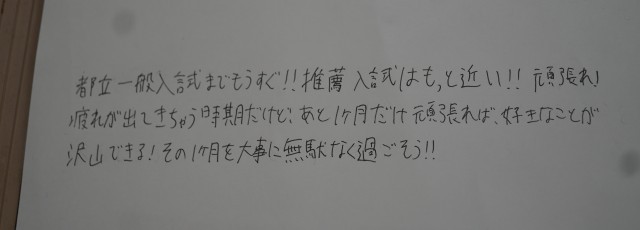 都立一般入試までもうすぐ!!推薦入試はもっと近い!!頑張れ!
疲れが出てきちゃう時期だけど、あと1ヶ月だけ頑張れば、好きなことが
沢山できる!その1ヶ月を大事に無駄なく過ごそう!!